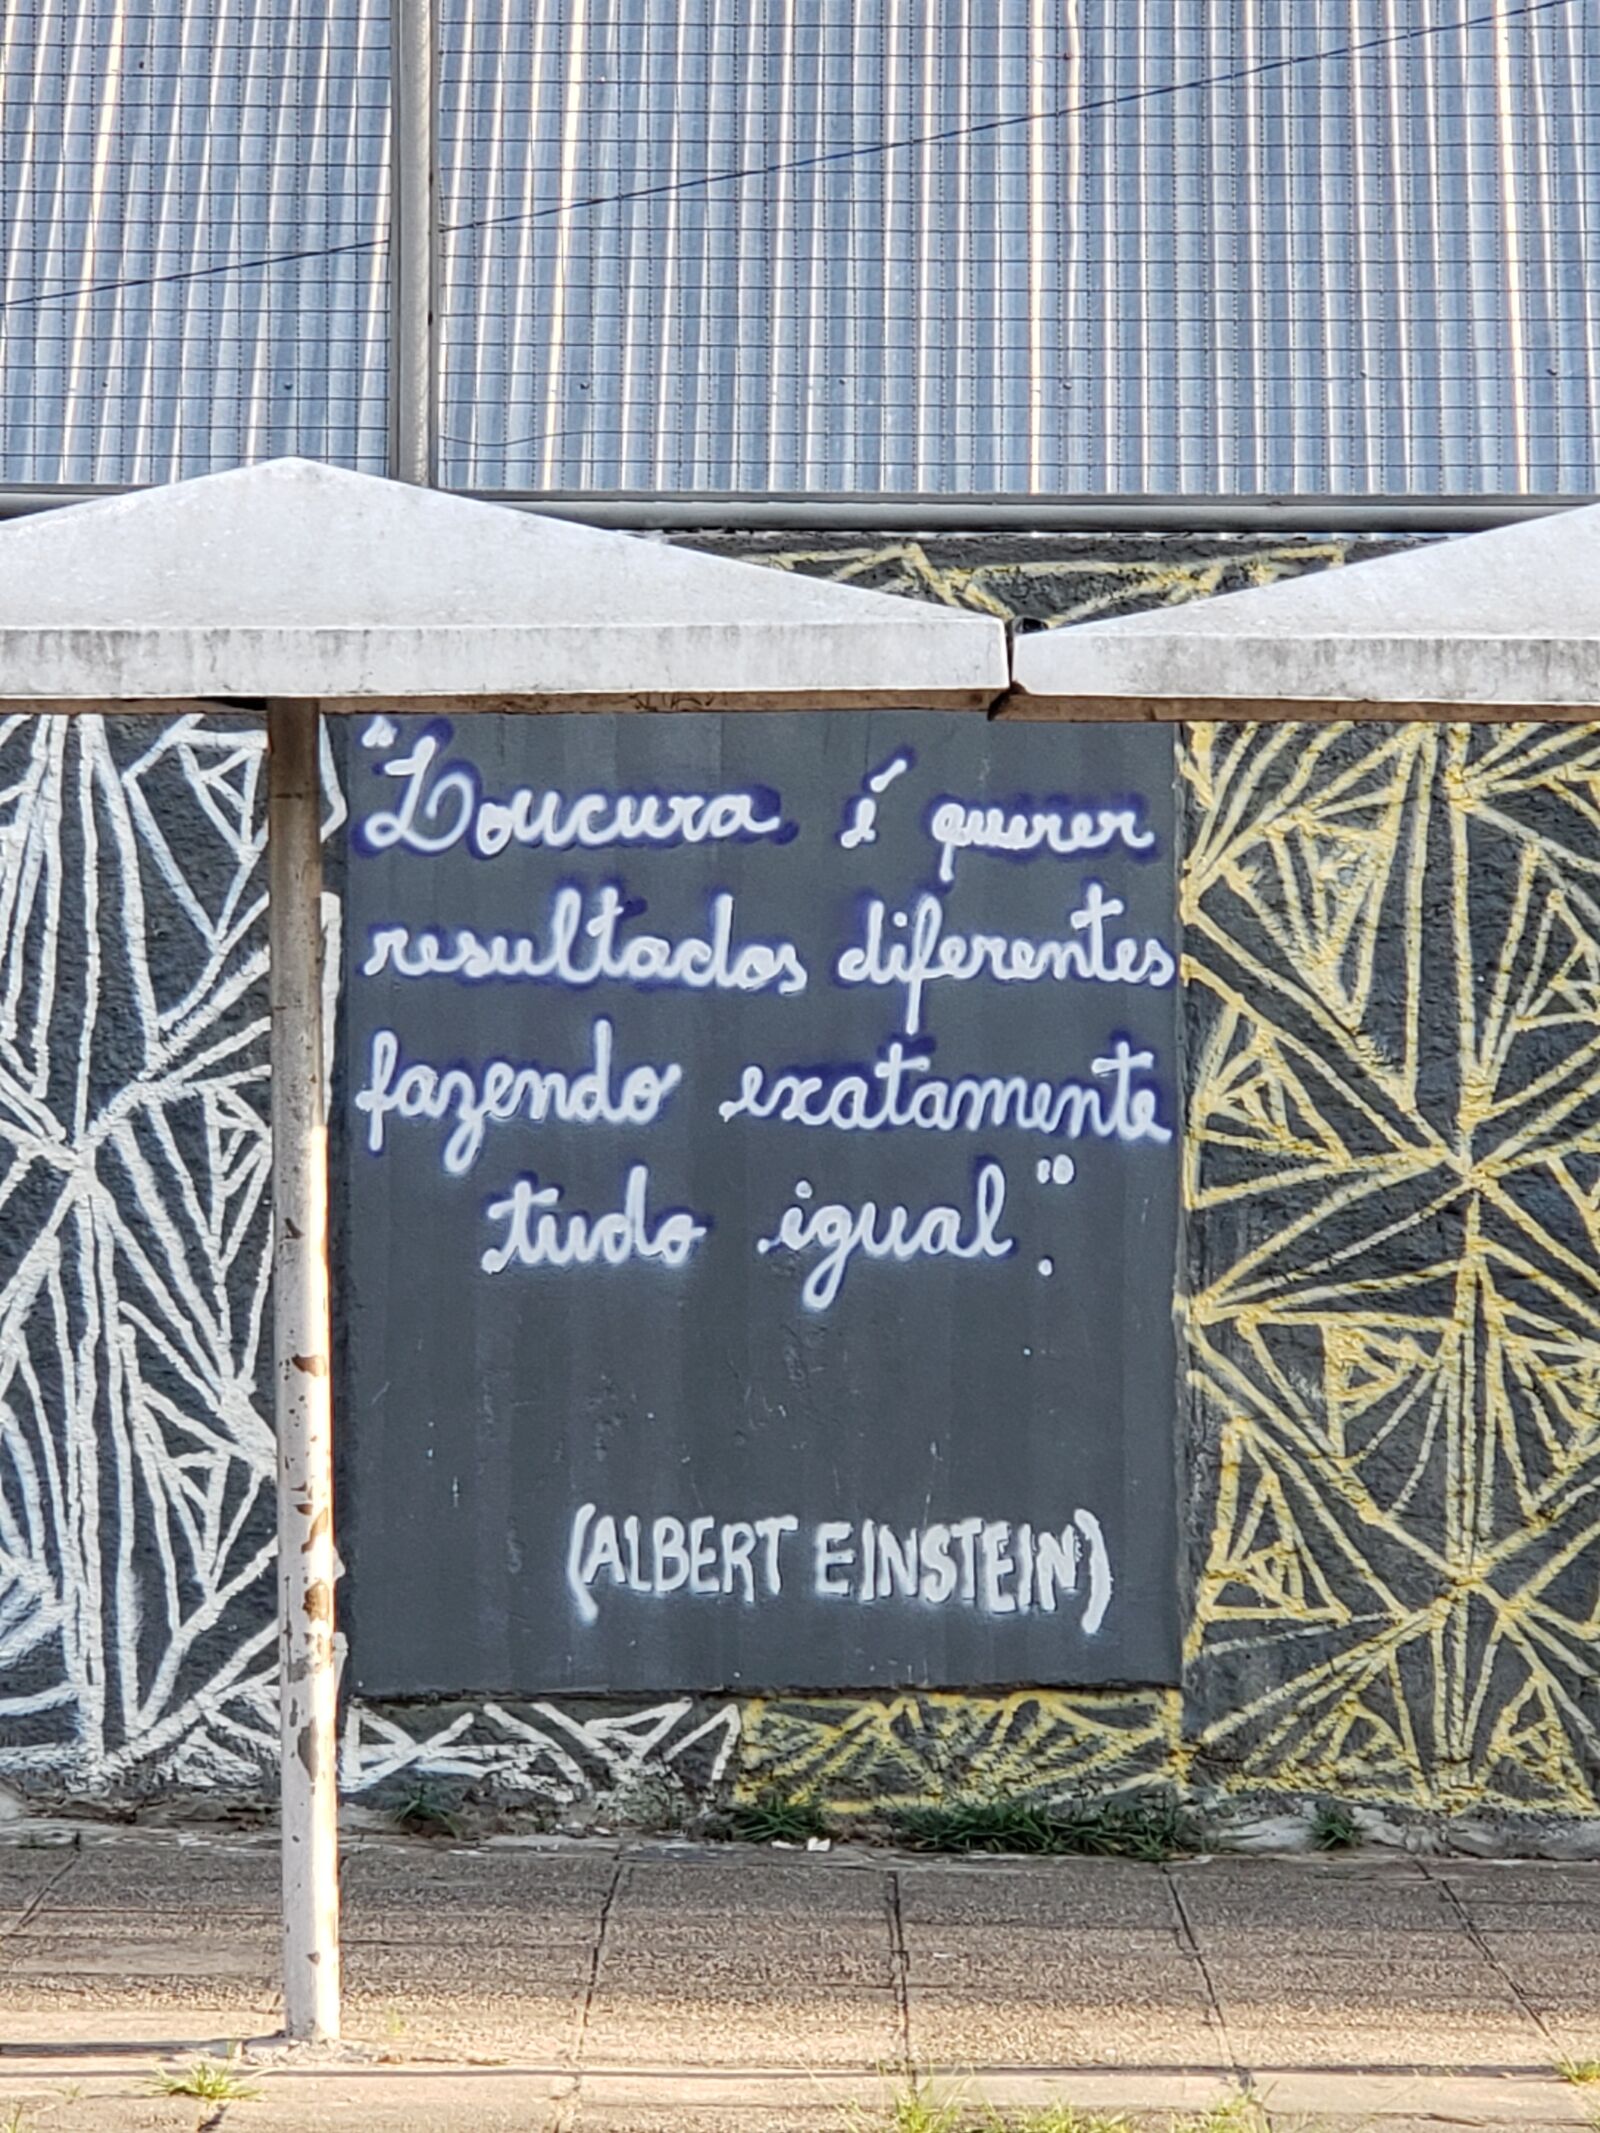 "Loucura é querer
resultados diferentes
fazendo exatamente
tudo igual."
(ALBERT EINSTEIN)